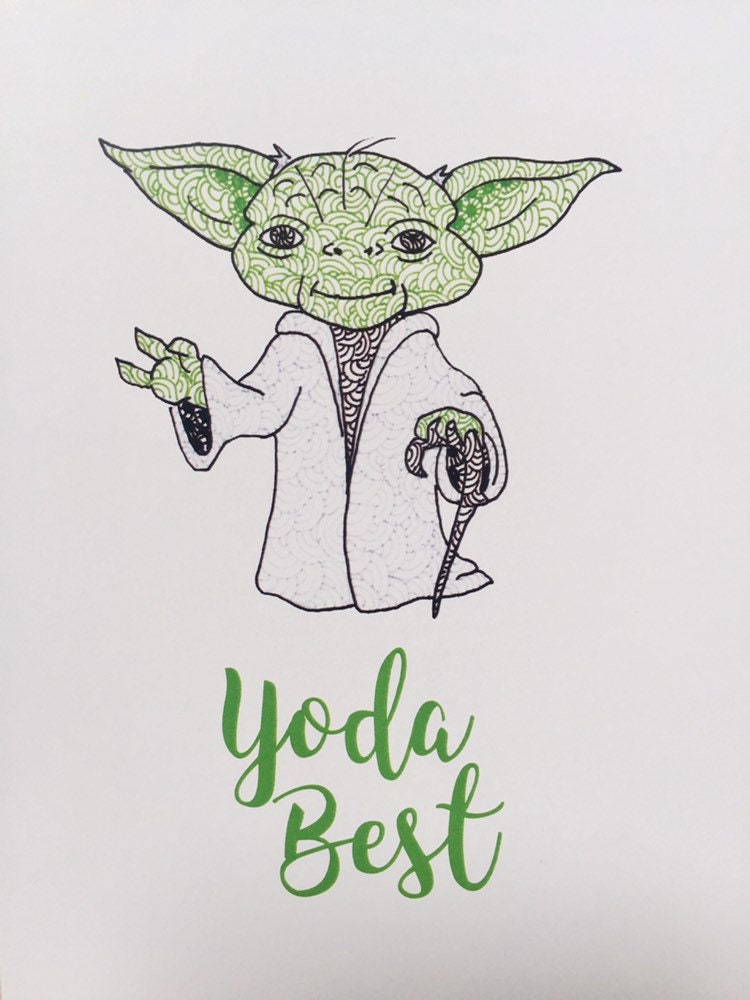 Yoda
Best